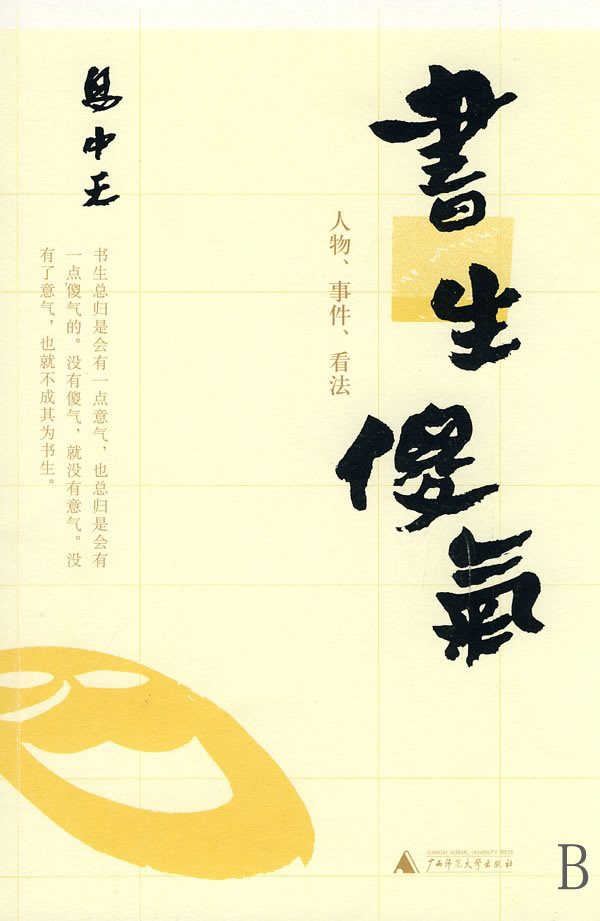 書生傻氣
人物、事件、看法
易中天
书生总归是会有一点意气，也总归是会有
一点傻气的。没有傻气，就没有意气。没
有了意气，也就不成其为书生。
GUANGXI NORMAL UNIVERSITY PRESS
广西师范大学出版社
B